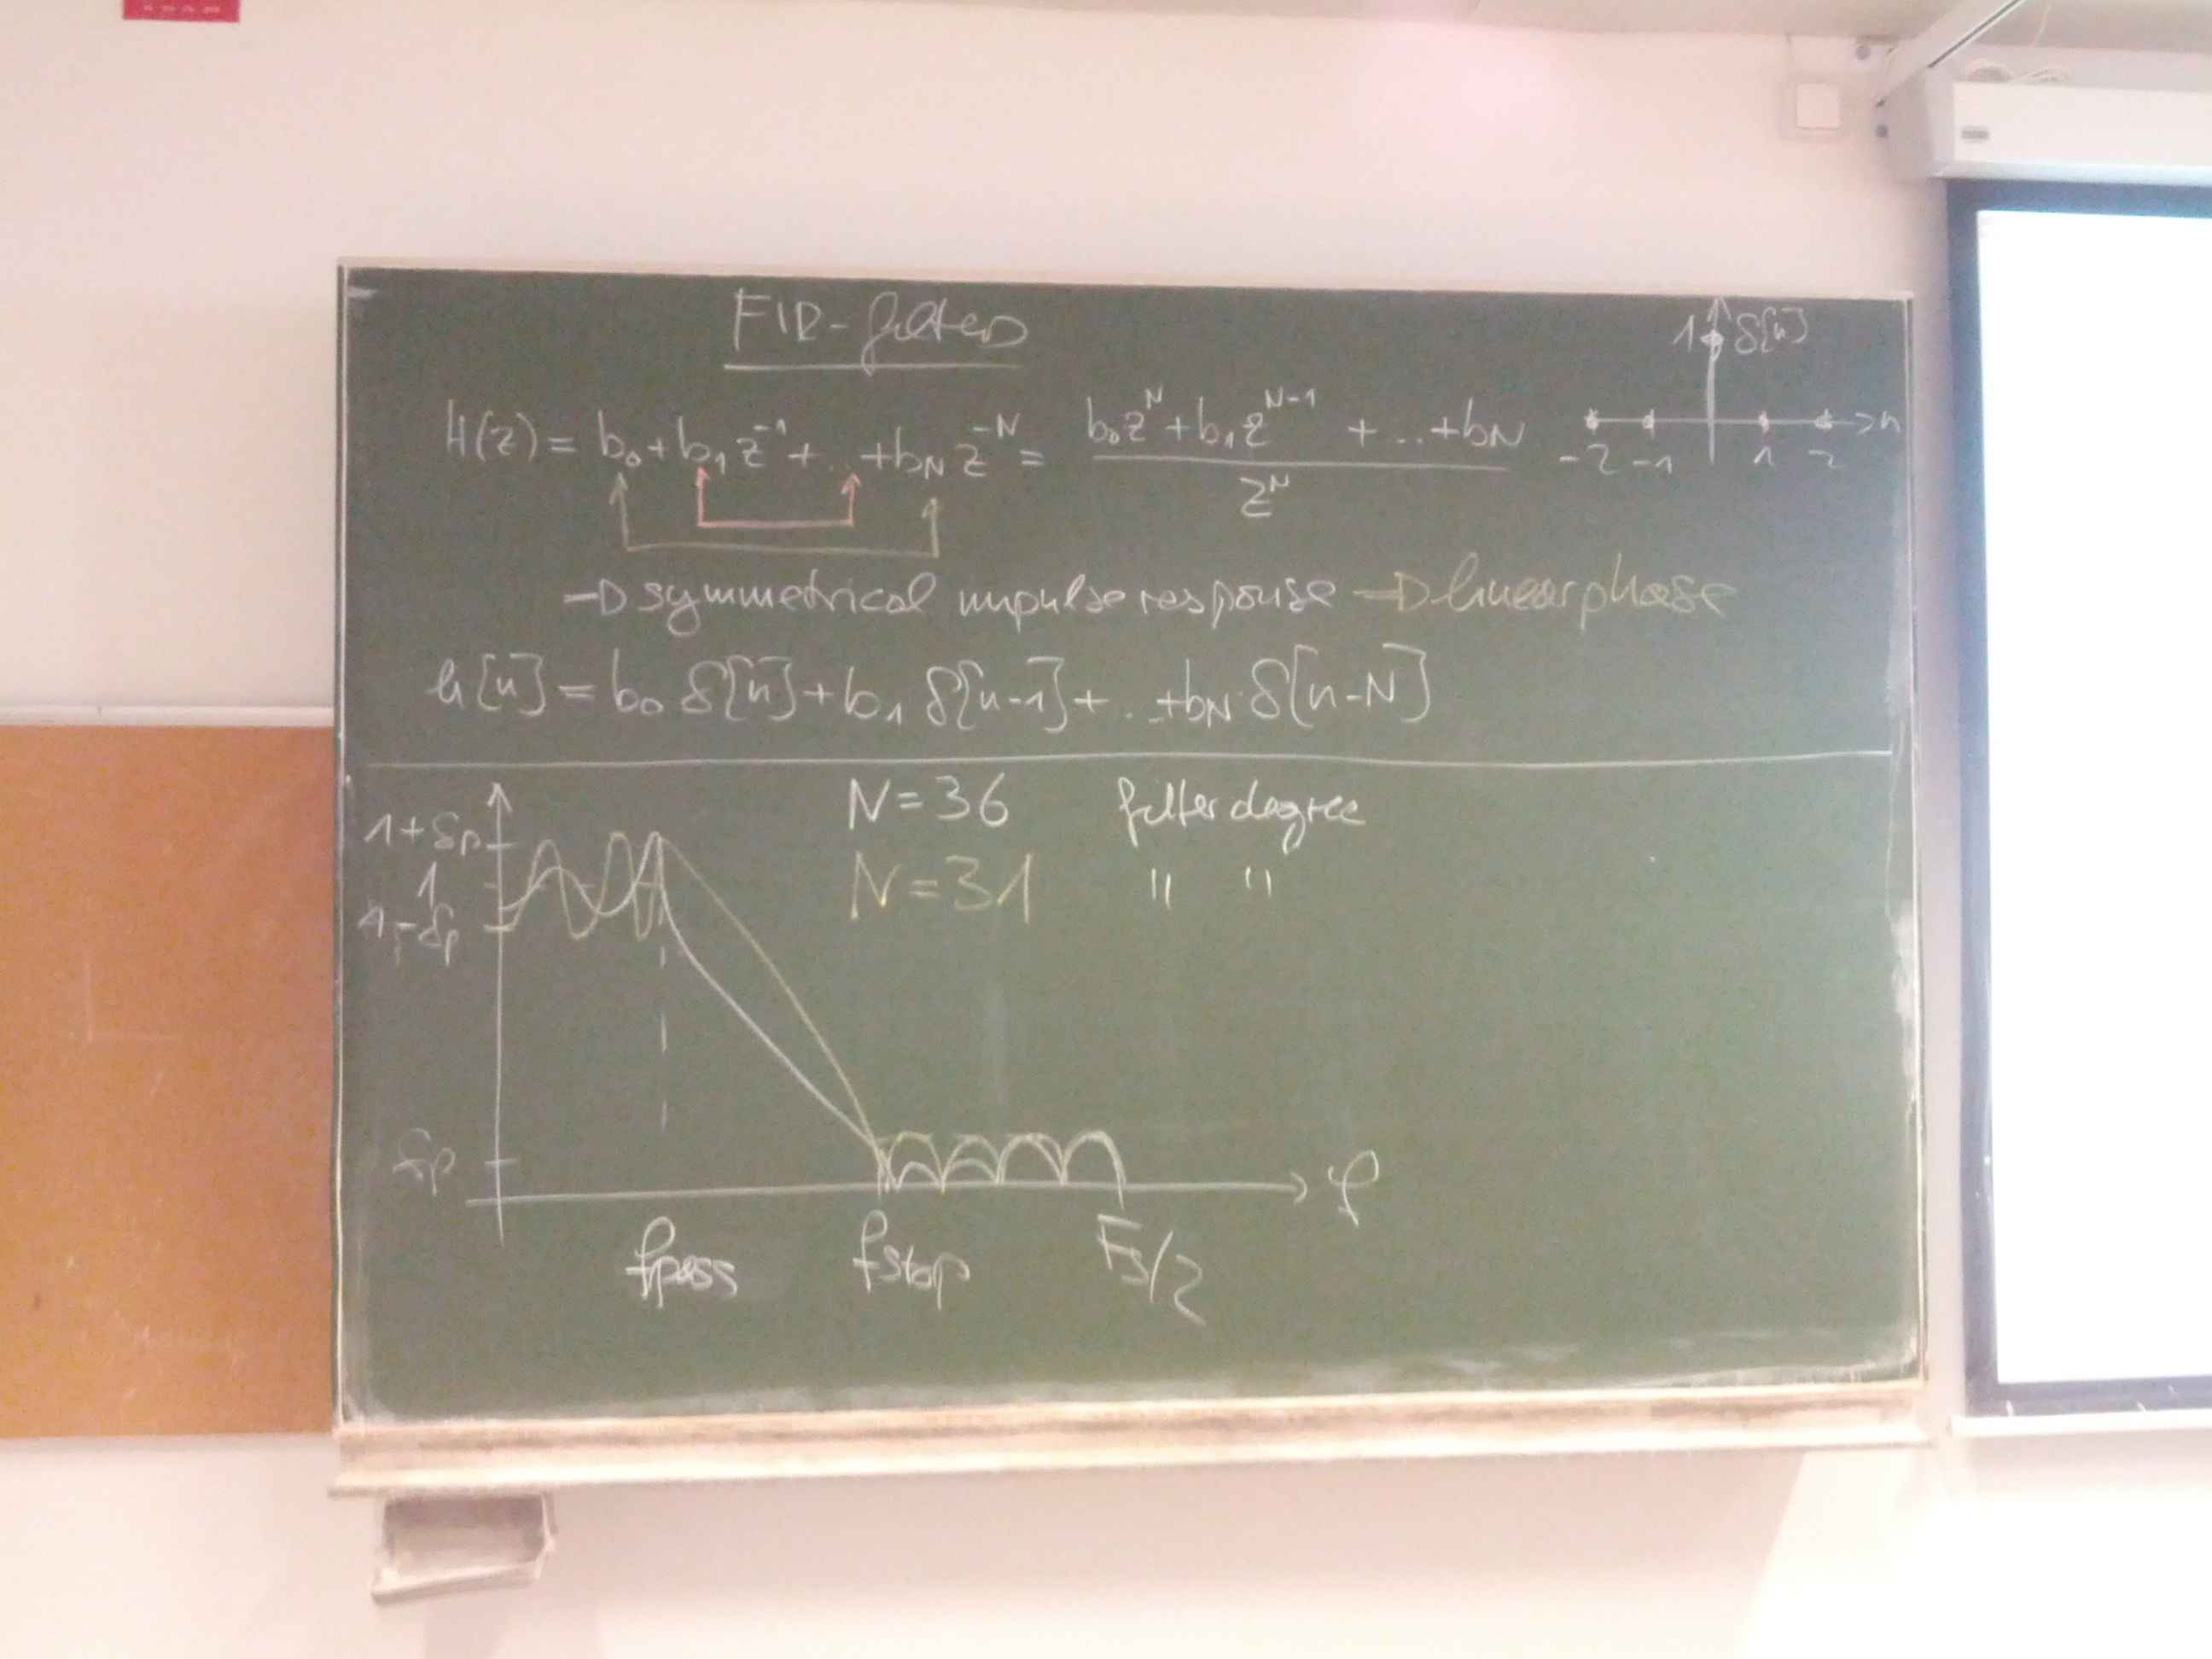 FIR-filters
1 δ[n]
H(z) = b₀ + b₁ z⁻¹ + ... + b_N z^-N = (b₀ z^N + b₁ z^N-1 + ... + b_N) / z^N
-2 -1 1 2 n
→ symmetrical impulse response → linear phase
h[n] = b₀ δ[n] + b₁ δ[n-1] + ... + b_N · δ[n-N]
N = 36 filter degree
N = 31 " "
1+δp
1
1-δp
δp
f
fpass fstop Fs/2